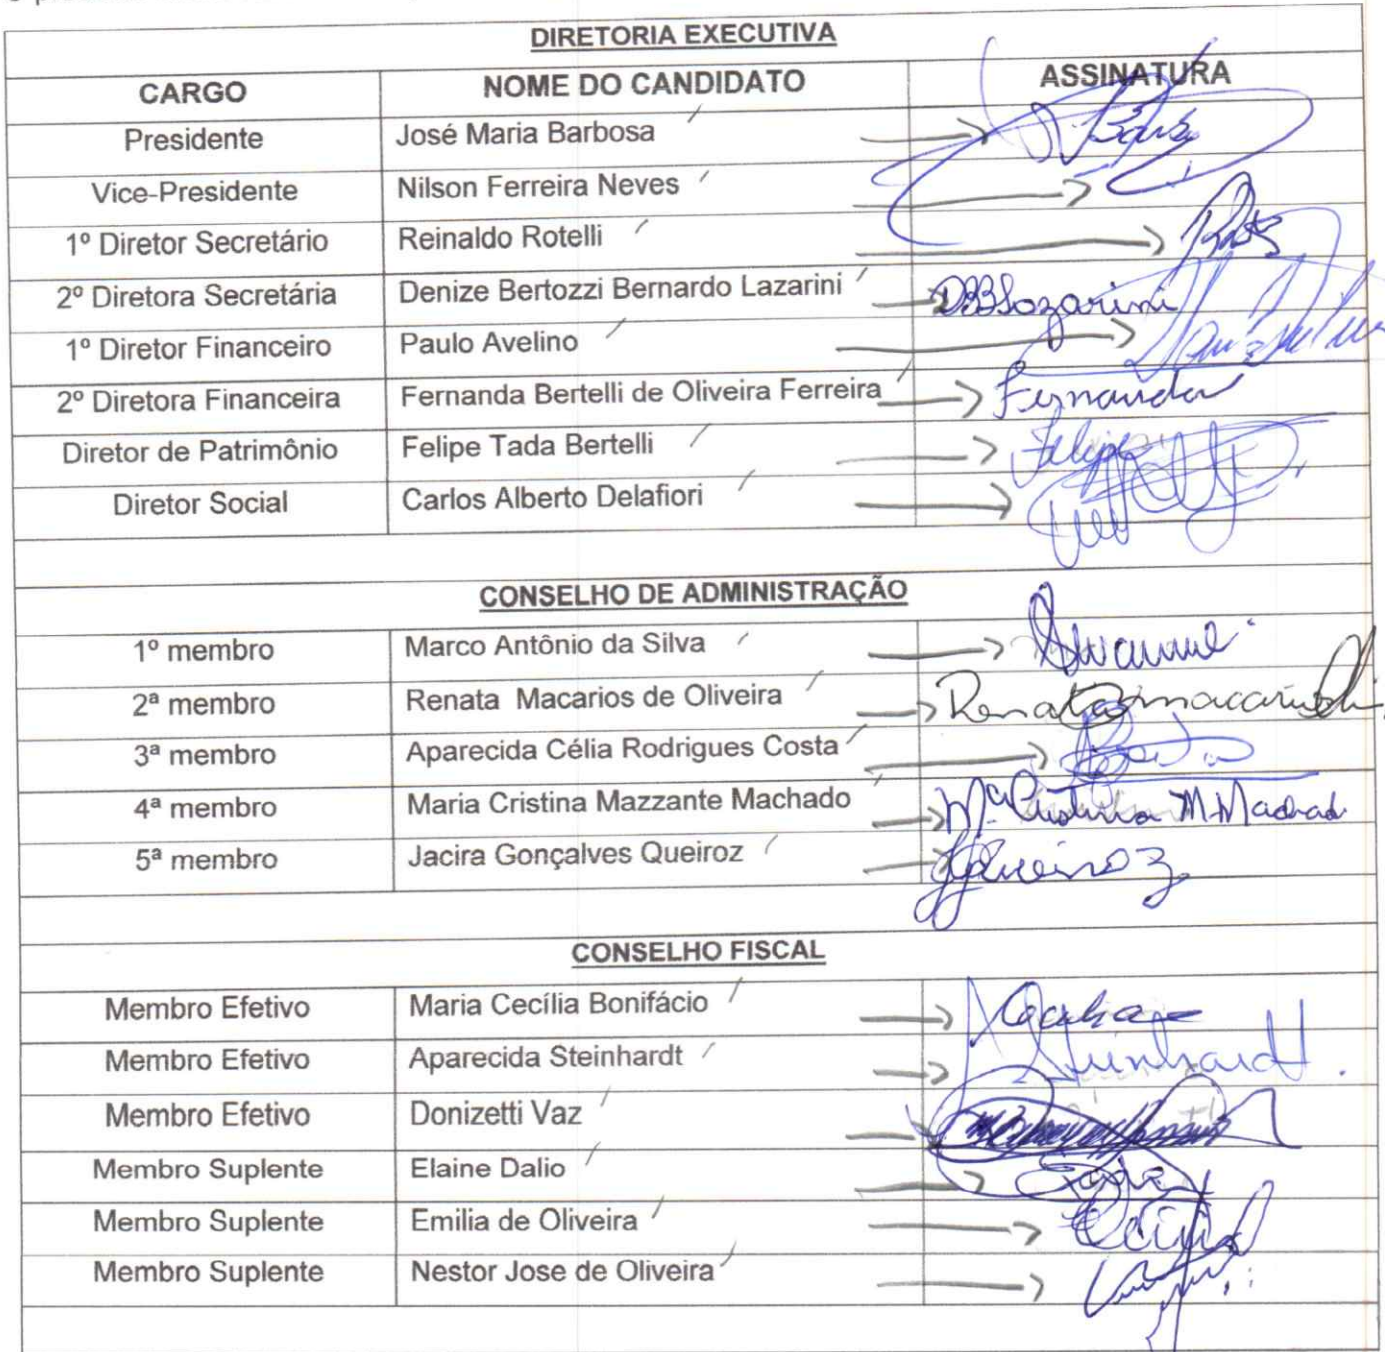 DIRETORIA EXECUTIVA
CARGO NOME DO CANDIDATO ASSINATURA
Presidente José Maria Barbosa
Vice-Presidente Nilson Ferreira Neves
1º Diretor Secretário Reinaldo Rotelli
2º Diretora Secretária Denize Bertozzi Bernardo Lazarini DBBLazarini
1º Diretor Financeiro Paulo Avelino
2º Diretora Financeira Fernanda Bertelli de Oliveira Ferreira Fernanda
Diretor de Patrimônio Felipe Tada Bertelli Felipe
Diretor Social Carlos Alberto Delafiori
CONSELHO DE ADMINISTRAÇÃO
1º membro Marco Antônio da Silva
2ª membro Renata Macarios de Oliveira Renata
3ª membro Aparecida Célia Rodrigues Costa
4ª membro Maria Cristina Mazzante Machado Mª Cristina M. Machado
5ª membro Jacira Gonçalves Queiroz JGQueiroz
CONSELHO FISCAL
Membro Efetivo Maria Cecília Bonifácio
Membro Efetivo Aparecida Steinhardt Steinhardt
Membro Efetivo Donizetti Vaz
Membro Suplente Elaine Dalio
Membro Suplente Emilia de Oliveira
Membro Suplente Nestor Jose de Oliveira